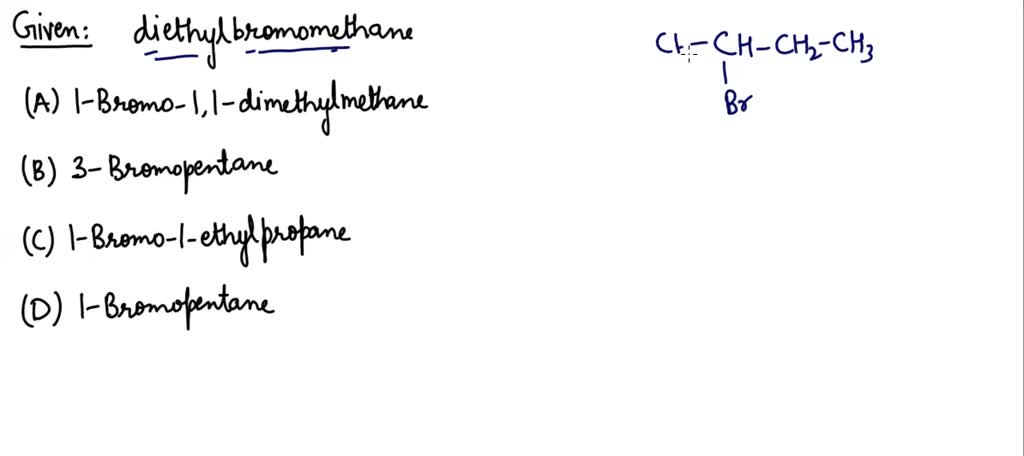 Given: diethylbromomethane
(A) 1-Bromo-1,1-dimethylmethane
(B) 3-Bromopentane
(C) 1-Bromo-1-ethylpropane
(D) 1-Bromopentane
CH-CH-CH2-CH3
Br